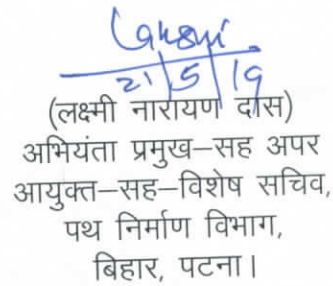 Lakshmi
21/5/19
(लक्ष्मी नारायण दास)
अभियंता प्रमुख–सह अपर
आयुक्त–सह–विशेष सचिव,
पथ निर्माण विभाग,
बिहार, पटना।